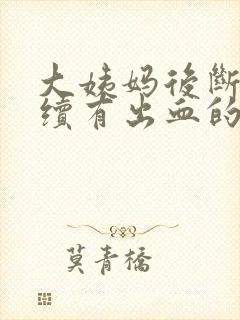 大姨妈後斷
續有出血的
莫青橋